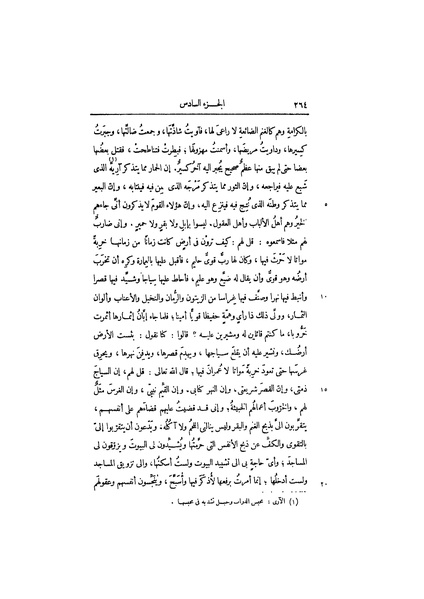 ٢٦٤ الجزء السادس
بالكرامة وهم كالغنم الضائعة لا راعى لها، فآويتُ شاذّتَها، وجمعتُ ضالّتَها، وجبرْتُ
كسيرها، وداويتُ مريضها، وأسمنتُ مهزولها؛ فبطِرتْ فتناطحتْ، فقتل بعضُها
بعضا حتى لم يبق منها عظمٌ صحيح يُجبر اليه آخر كسيرٌ. إن الحمار مما يتذكر آرِيَّهُ(١) الذى
شبع عليه فيراجعه، وإن الثور مما يتذكر مَرْجه الذى سمن فيه فينتابه، وإن البعير
٥ مما يتذكر وطنَه الذى نُتِج فيه فينزع اليه، وإن هؤلاء القومَ لا يذكرون أنَّى جاءهم
الخيرُ وهم أهلُ الألباب وأهل العقول. ليسوا بإبل ولا بقر ولا حمير. وإنى ضاربٌ
لهم مثلا فاسمعوه: قل لهم: كيف ترَوْن فى أرضٍ كانت زمانًا من زمانها خربةً
مواتا لا حَرْث فيها، وكان لها ربٌّ قوىٌّ حليم، فأقبل عليها بالعِمارة وكره أن تخرَبَ
أرضُه وهو قوىٌّ وأن يقال له ضيّع وهو عليم، فأحاط عليها سِياجا وشيّد فيها قصرا
١٠ وأنبط فيها نهرا وصنّف فيها غِراسا من الزيتون والرُّمان والنخيل والأعناب وألوان
الثمار، وولَّى ذلك ذا رأى وهمّةٍ حفيظًا قويًّا أمينا؛ فلما جاء إبّانُ إثمارها أثمرت
خَرُّوبا، ما كنتم قائلين له ومشيرين عليه؟ قالوا: كنا نقول: بئست الأرض
أرضُك، ونشير عليه أن يقلَع سياجها، ويهدِمَ قصرها، ويدفِنَ نهرها، ويحرِق
غرسها حتى تعودَ خربةً مواتا لا عُمرانَ فيها؛ قال الله تعالى: قل لهم، إن السياج
١٥ ذمتى، وإن القصرَ شريعتى، وإن النهر كتابى، وإن القيّم نبيّى، وإن الغرس مثَلٌ
لهم، والخرّوب أعمالُهم الخبيثةُ؛ وإنى قد قضيتُ عليهم قضاءهم على أنفسهم،
يتقرّبون إلىّ بذبح الغنم والبقر وليس ينالنى اللحمُ ولا آكلُه، ويَدْعون أن يتقربوا إلىّ
بالتقوى والكفّ عن ذبح الأنفس التى حرّمتُها ويُشيِّدون لى البيوت ويزوّقون لى
المساجدَ؛ وأىُّ حاجةٍ بى الى تشييد البيوت ولستُ أسكنُها، والى تزويق المساجد
٢٠ ولست أدخلُها؛ إنما أمرتُ برفعها لأُذكرَ فيها وأُسبَّحَ، ويُنجِّسون أنفسهم وعقولهم
(١) الآرى: محبس الدواب وحبل تشد به فى محبسها.